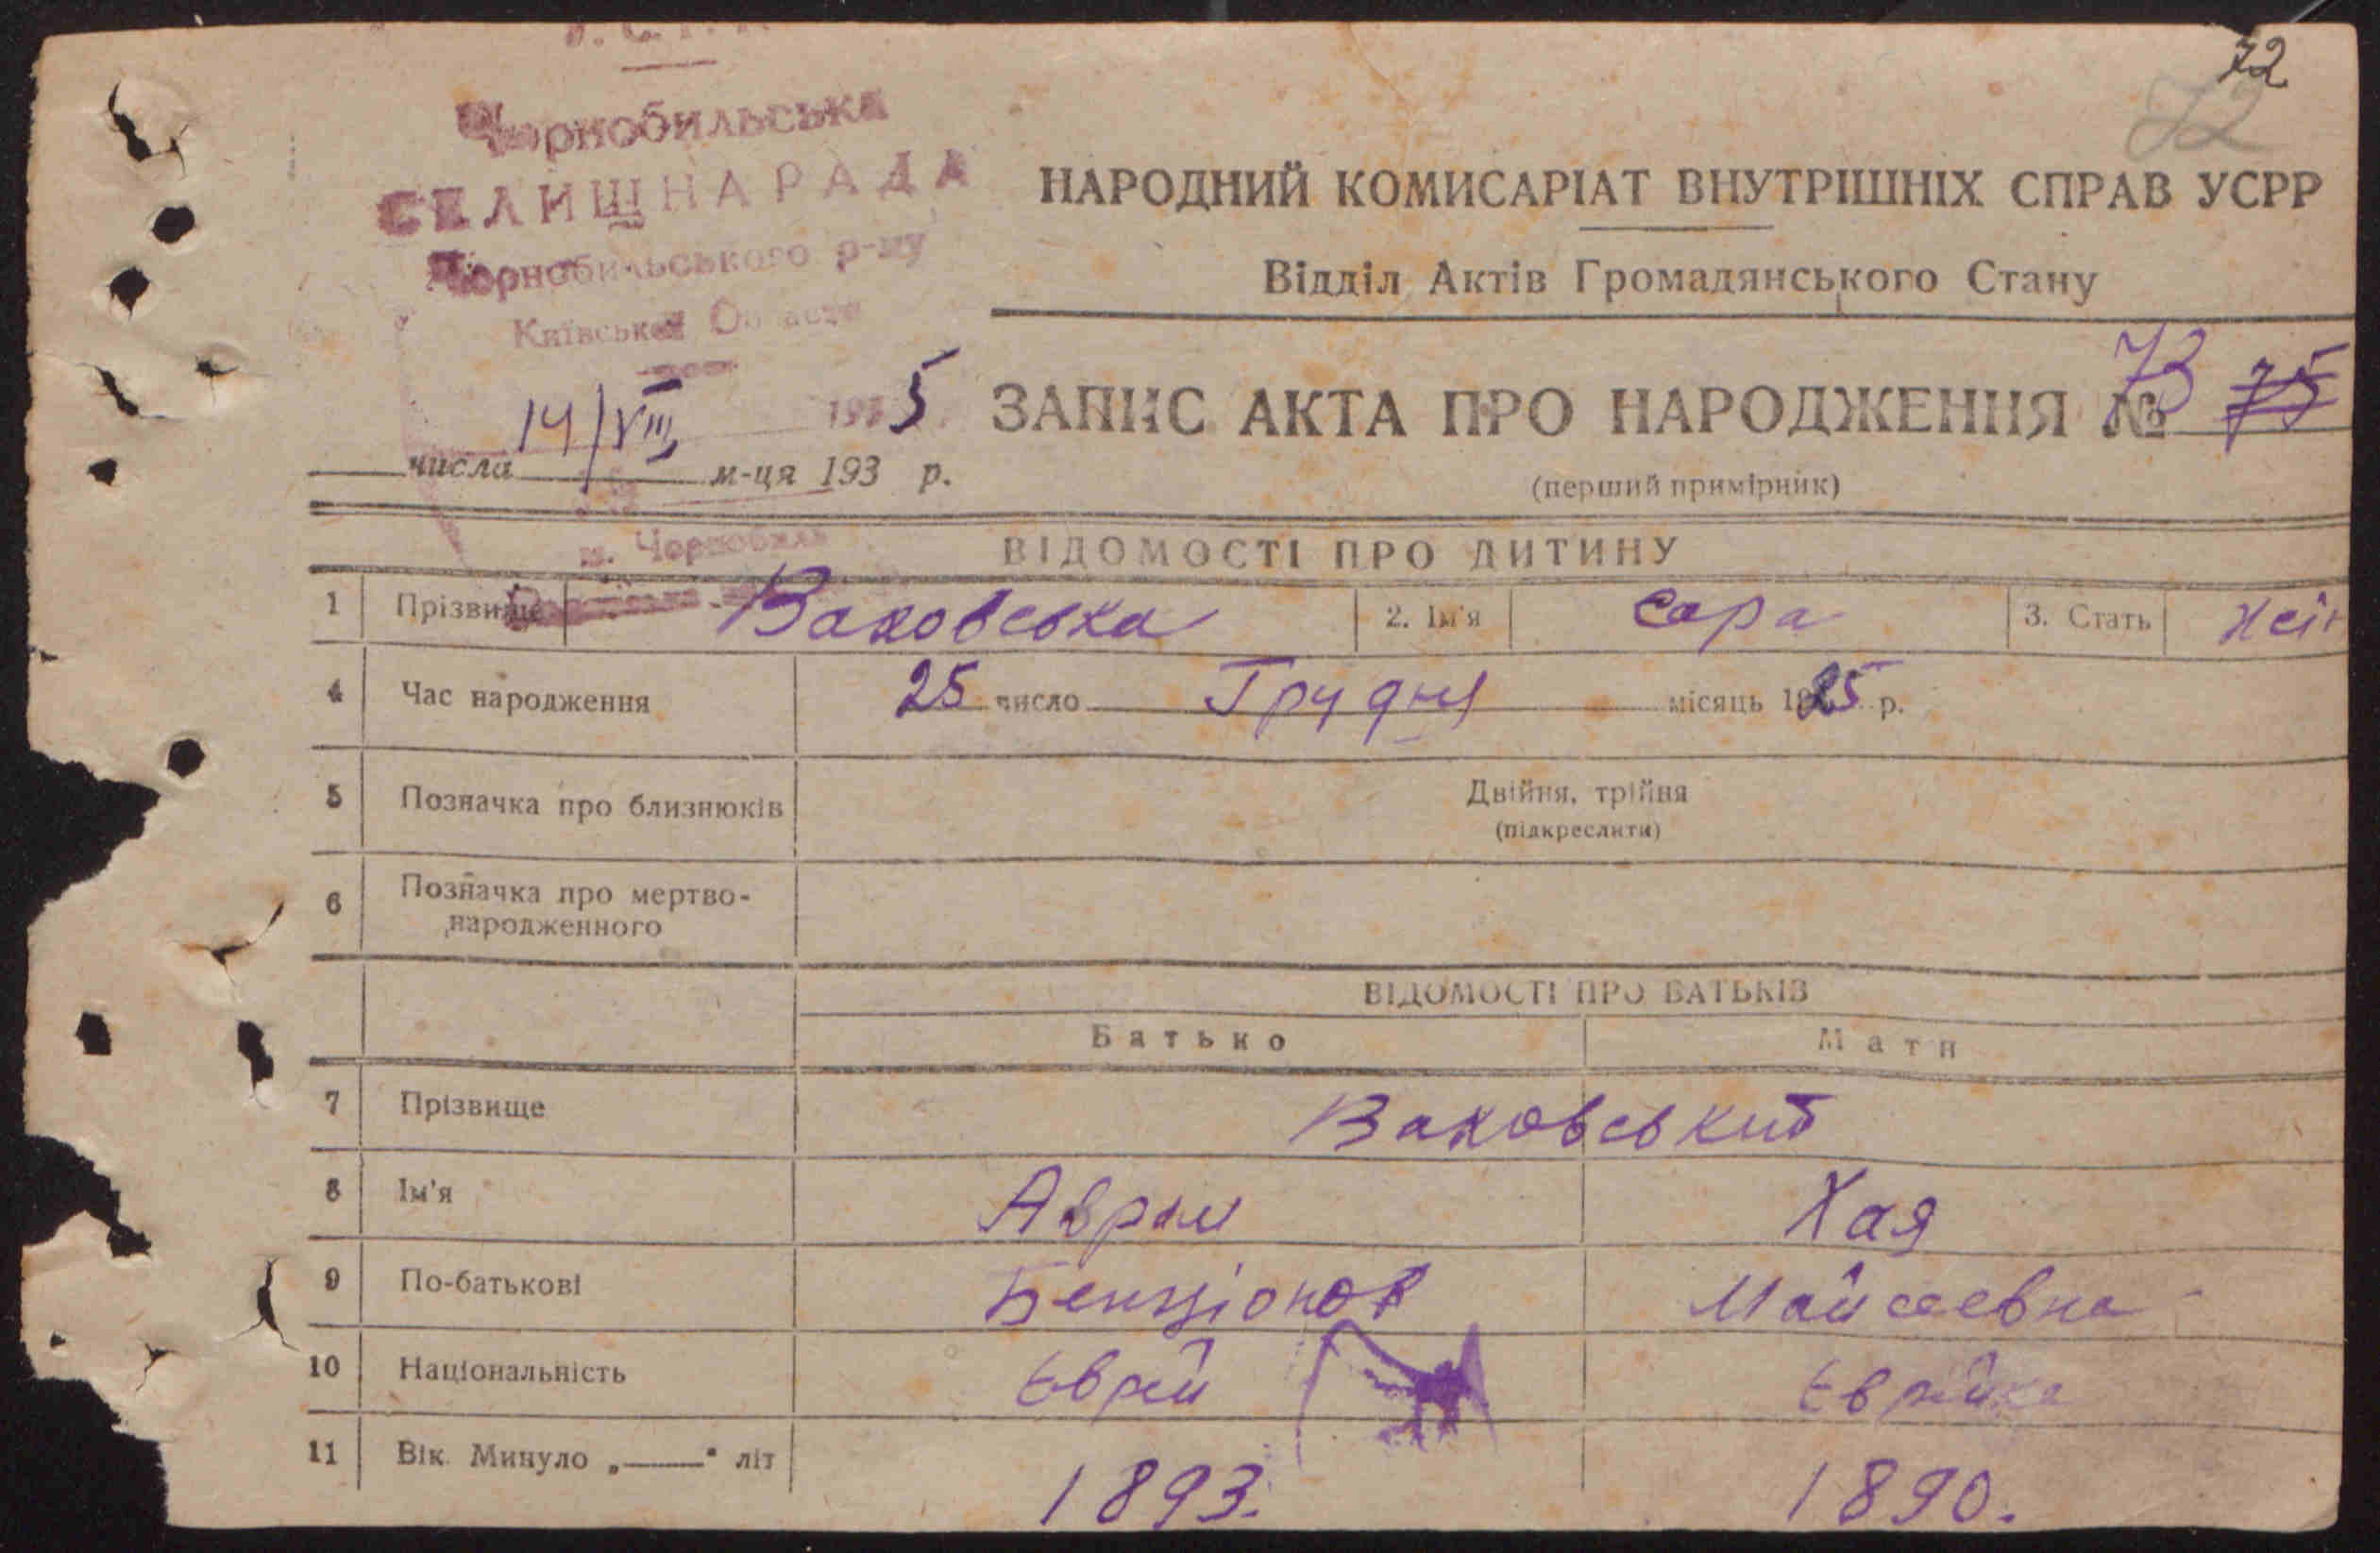 72
72
Чорнобильська
СЕЛИЩНА РАДА
Чорнобильського р-ну
Київської Області
НАРОДНИЙ КОМИСАРІАТ ВНУТРІШНІХ СПРАВ УСРР
Відділ Актів Громадянського Стану
14/VIII 1935
ЗАПИС АКТА ПРО НАРОДЖЕННЯ № 73 75
числа м-ця 193 р.
(перший примірник)
м. Чорнобиль
ВІДОМОСТІ ПРО ДИТИНУ
1 Прізвище Ваковська 2. Ім'я Сара 3. Стать жін
4 Час народження 25 число Грудня місяць 1925 р.
5 Позначка про близнюків Двійня, трійня
(підкреслити)
6 Позначка про мертво-
народженного
ВІДОМОСТІ ПРО БАТЬКІВ
Батько Мати
7 Прізвище Ваковський
8 Ім'я Аврам Хая
9 По-батькові Бенціонов Мойсеевна
10 Національність Єврей Єврейка
11 Вік. Минуло „ — “ літ 1893. 1890.